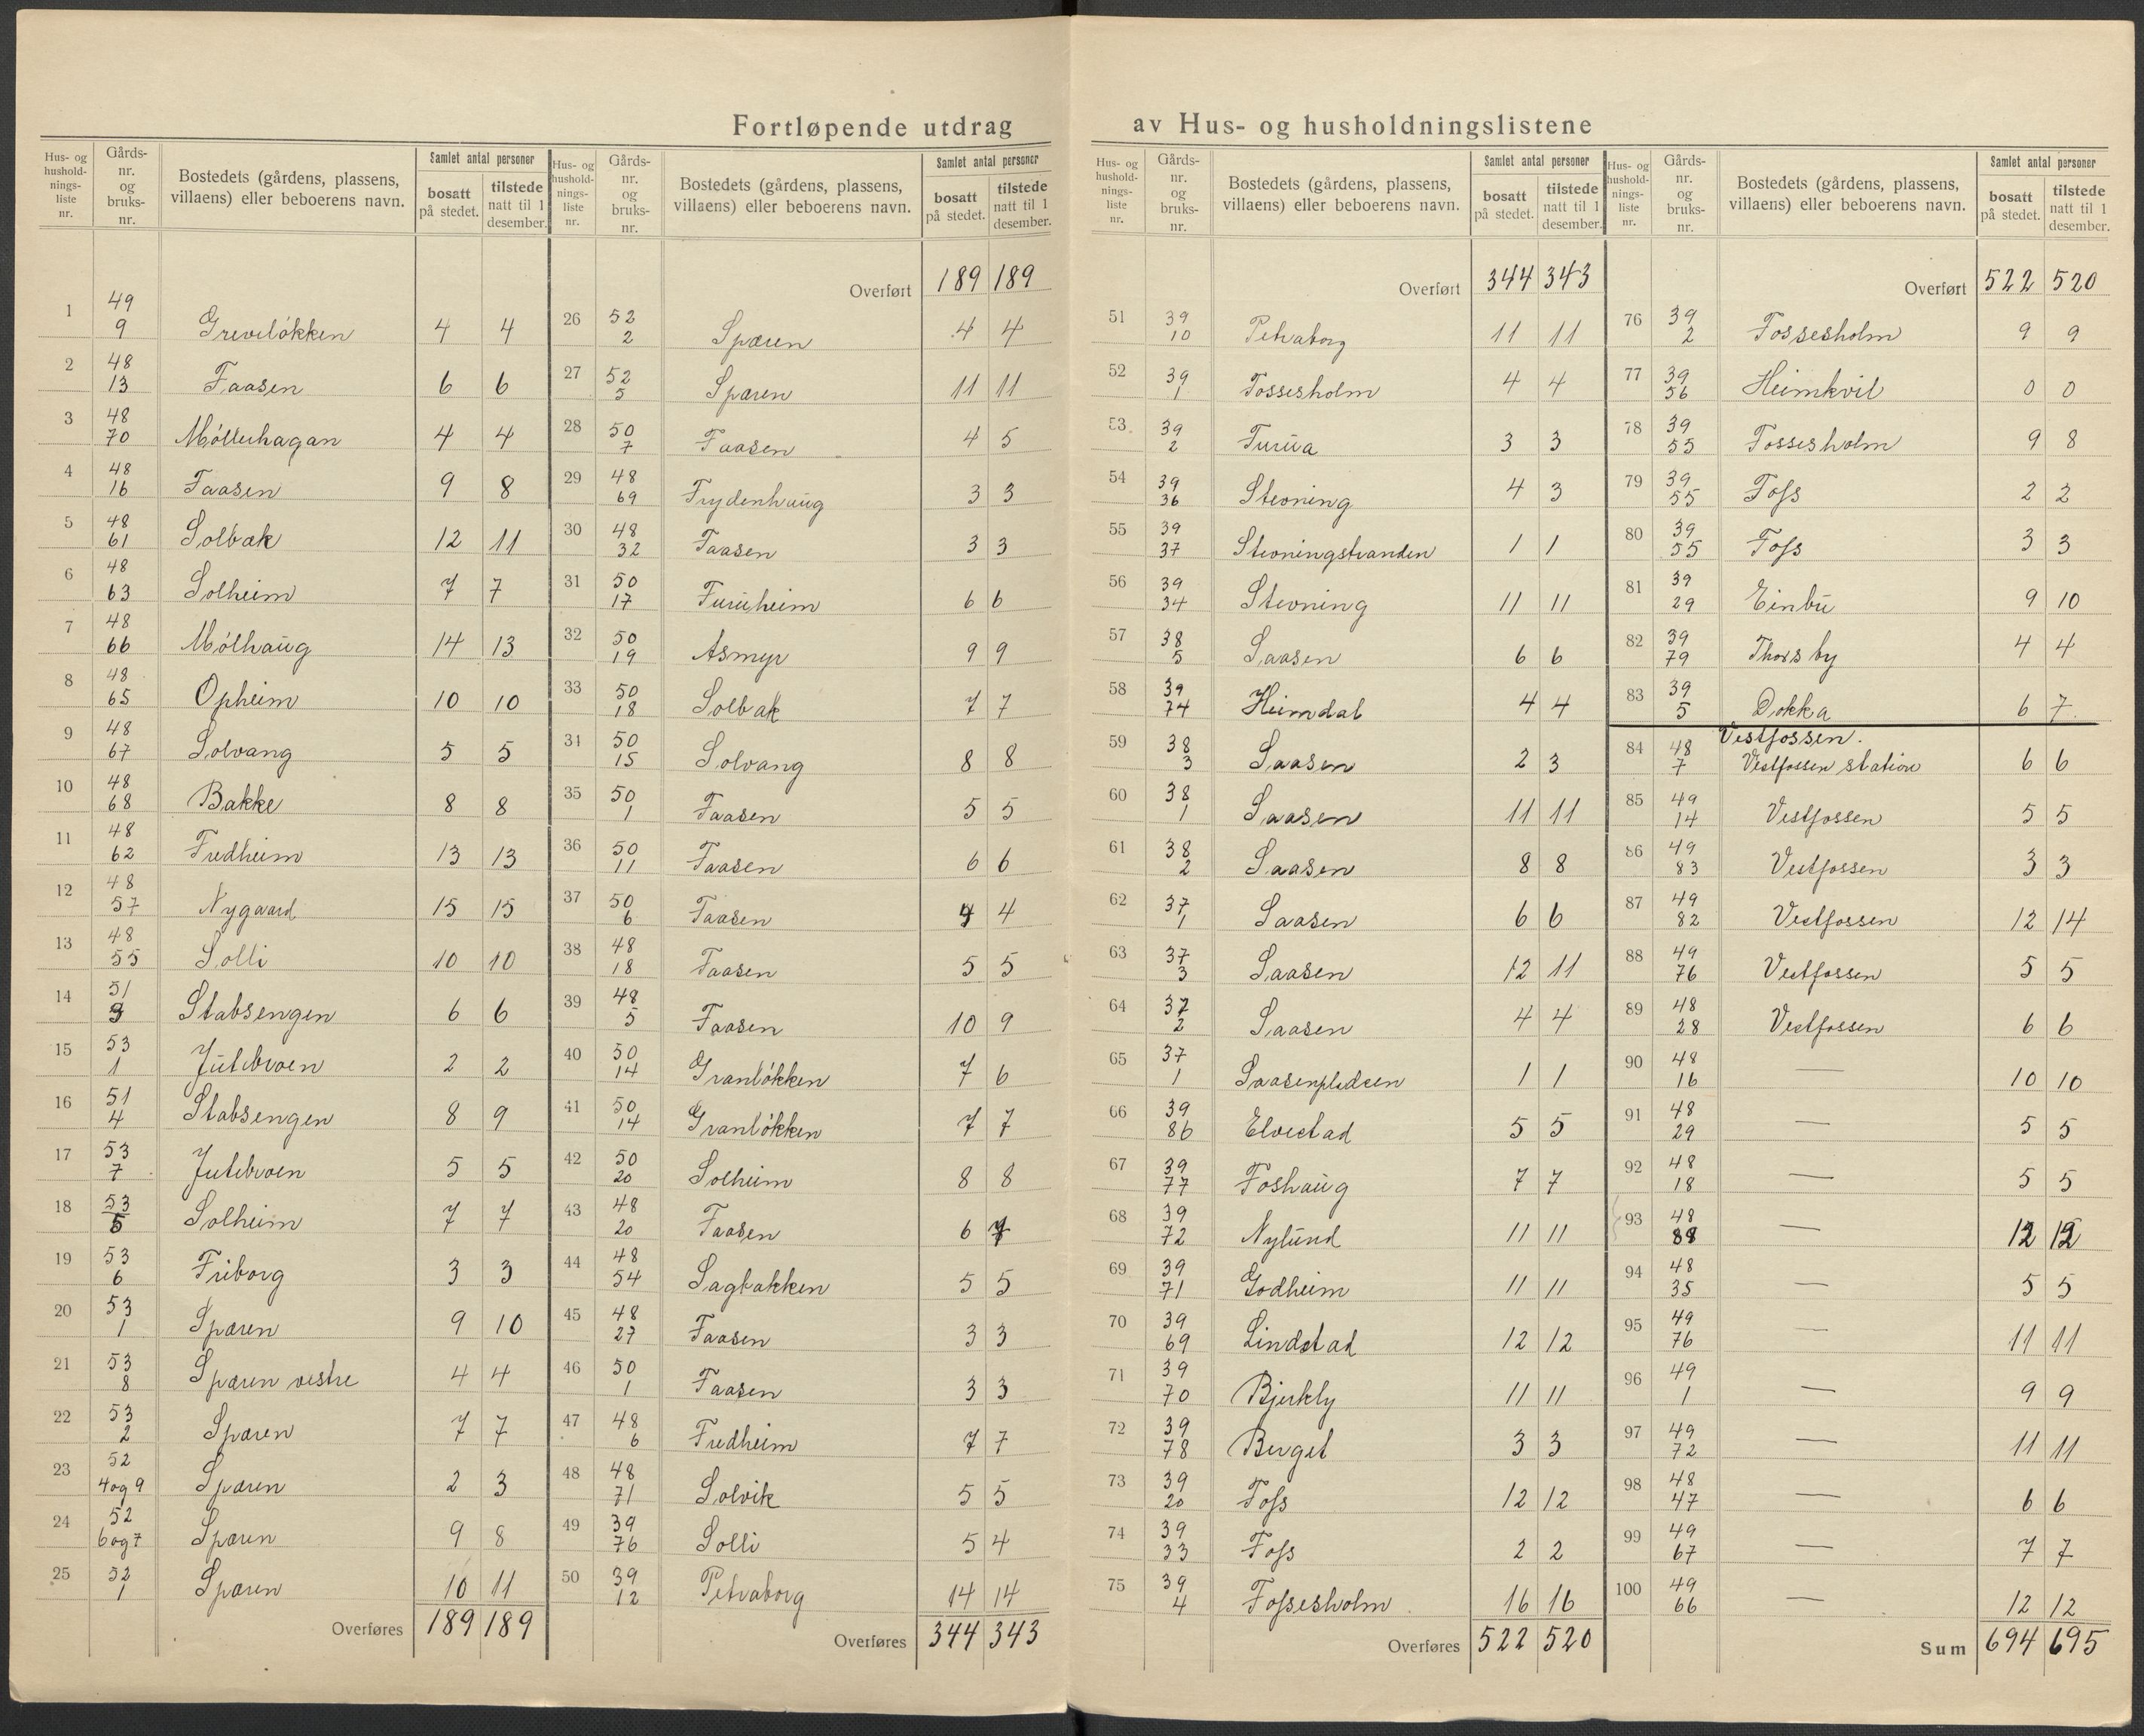 Fortløpende utdrag av Hus- og husholdningslistene
Hus- og husholdnings-liste nr. | Gårds-nr. og bruks-nr. | Bostedets (gårdens, plassens, villaens) eller beboerens navn. | Samlet antal personer bosatt på stedet. | tilstede natt til 1 desember.
1 49/9 Greveløkken 4 4
2 48/13 Faasen 6 6
3 48/70 Møllerhagan 4 4
4 48/16 Faasen 9 8
5 48/61 Solbak 12 11
6 48/63 Solheim 7 7
7 48/66 Mølhaug 14 13
8 48/65 Opheim 10 10
9 48/67 Solvang 5 5
10 48/68 Bakke 8 8
11 48/62 Fredheim 13 13
12 48/57 Nygaard 15 15
13 48/55 Solli 10 10
14 51/3 Stabsengen 6 6
15 53/1 Julebroen 2 2
16 51/4 Stabsengen 8 9
17 53/7 Julebroen 5 5
18 53/5 Solheim 7 7
19 53/6 Friborg 3 3
20 53/1 Spæren 9 10
21 53/8 Spæren vestre 4 4
22 53/2 Spæren 7 7
23 52/4 og 9 Spæren 2 3
24 52/6 og 7 Spæren 9 8
25 52/1 Spæren 10 11
Overføres 189 189
Hus- og husholdnings-liste nr. | Gårds-nr. og bruks-nr. | Bostedets (gårdens, plassens, villaens) eller beboerens navn. | Samlet antal personer bosatt på stedet. | tilstede natt til 1 desember.
Overført 189 189
26 52/2 Spæren 4 4
27 52/5 Spæren 11 11
28 50/7 Faasen 4 5
29 48/69 Frydenhaug 3 3
30 48/32 Faasen 3 3
31 50/17 Furuheim 6 6
32 50/19 Asmyr 9 9
33 50/18 Solbak 7 7
34 50/15 Solvang 8 8
35 50/1 Faasen 5 5
36 50/11 Faasen 6 6
37 50/6 Faasen 4 4
38 48/18 Faasen 5 5
39 48/5 Faasen 10 9
40 50/14 Granløkken 7 6
41 50/14 Granløkken 7 7
42 50/20 Solheim 8 8
43 48/20 Faasen 6 7
44 48/54 Sagbakken 5 5
45 48/27 Faasen 3 3
46 50/1 Faasen 3 3
47 48/6 Fredheim 7 7
48 48/71 Solvik 5 5
49 39/76 Solli 5 4
50 39/12 Petraborg 14 14
Overføres 344 343
Hus- og husholdnings-liste nr. | Gårds-nr. og bruks-nr. | Bostedets (gårdens, plassens, villaens) eller beboerens navn. | Samlet antal personer bosatt på stedet. | tilstede natt til 1 desember.
Overført 344 343
51 39/10 Petraborg 11 11
52 39/1 Fossesholm 4 4
53 39/2 Furua 3 3
54 39/36 Sterning 4 3
55 39/37 Sterningstranden 1 1
56 39/34 Sterning 11 11
57 38/5 Saasen 6 6
58 39/74 Heimdal 4 4
59 38/3 Saasen 2 3
60 38/1 Saasen 11 11
61 38/2 Saasen 8 8
62 37/1 Saasen 6 6
63 37/3 Saasen 12 11
64 37/2 Saasen 4 4
65 37/1 Saasenpladsen 1 1
66 39/86 Elvestad 5 5
67 39/77 Foshaug 7 7
68 39/72 Nylund 11 11
69 39/71 Godheim 11 11
70 39/69 Lindstad 12 12
71 39/70 Bjerkly 11 11
72 39/78 Berget 3 3
73 39/20 Foss 12 12
74 39/33 Foss 2 2
75 39/4 Fossesholm 16 16
Overføres 522 520
Hus- og husholdnings-liste nr. | Gårds-nr. og bruks-nr. | Bostedets (gårdens, plassens, villaens) eller beboerens navn. | Samlet antal personer bosatt på stedet. | tilstede natt til 1 desember.
Overført 522 520
76 39/2 Fossesholm 9 9
77 39/56 Heimkvil 0 0
78 39/55 Fossesholm 9 8
79 39/55 Foss 2 2
80 39/55 Foss 3 3
81 39/29 Einbu 9 10
82 39/79 Thorsby 4 4
83 39/5 Dokka 6 7
Vestfossen.
84 48/7 Vestfossen station 6 6
85 49/14 Vestfossen 5 5
86 49/83 Vestfossen 3 3
87 49/82 Vestfossen 12 14
88 49/76 Vestfossen 5 5
89 48/28 Vestfossen 6 6
90 48/16 — 10 10
91 48/29 — 5 5
92 48/18 — 5 5
93 48/88 — 12 12
94 48/35 — 5 5
95 49/76 — 11 11
96 49/1 — 9 9
97 49/72 — 11 11
98 48/47 — 6 6
99 49/67 — 7 7
100 49/66 — 12 12
Sum 694 695